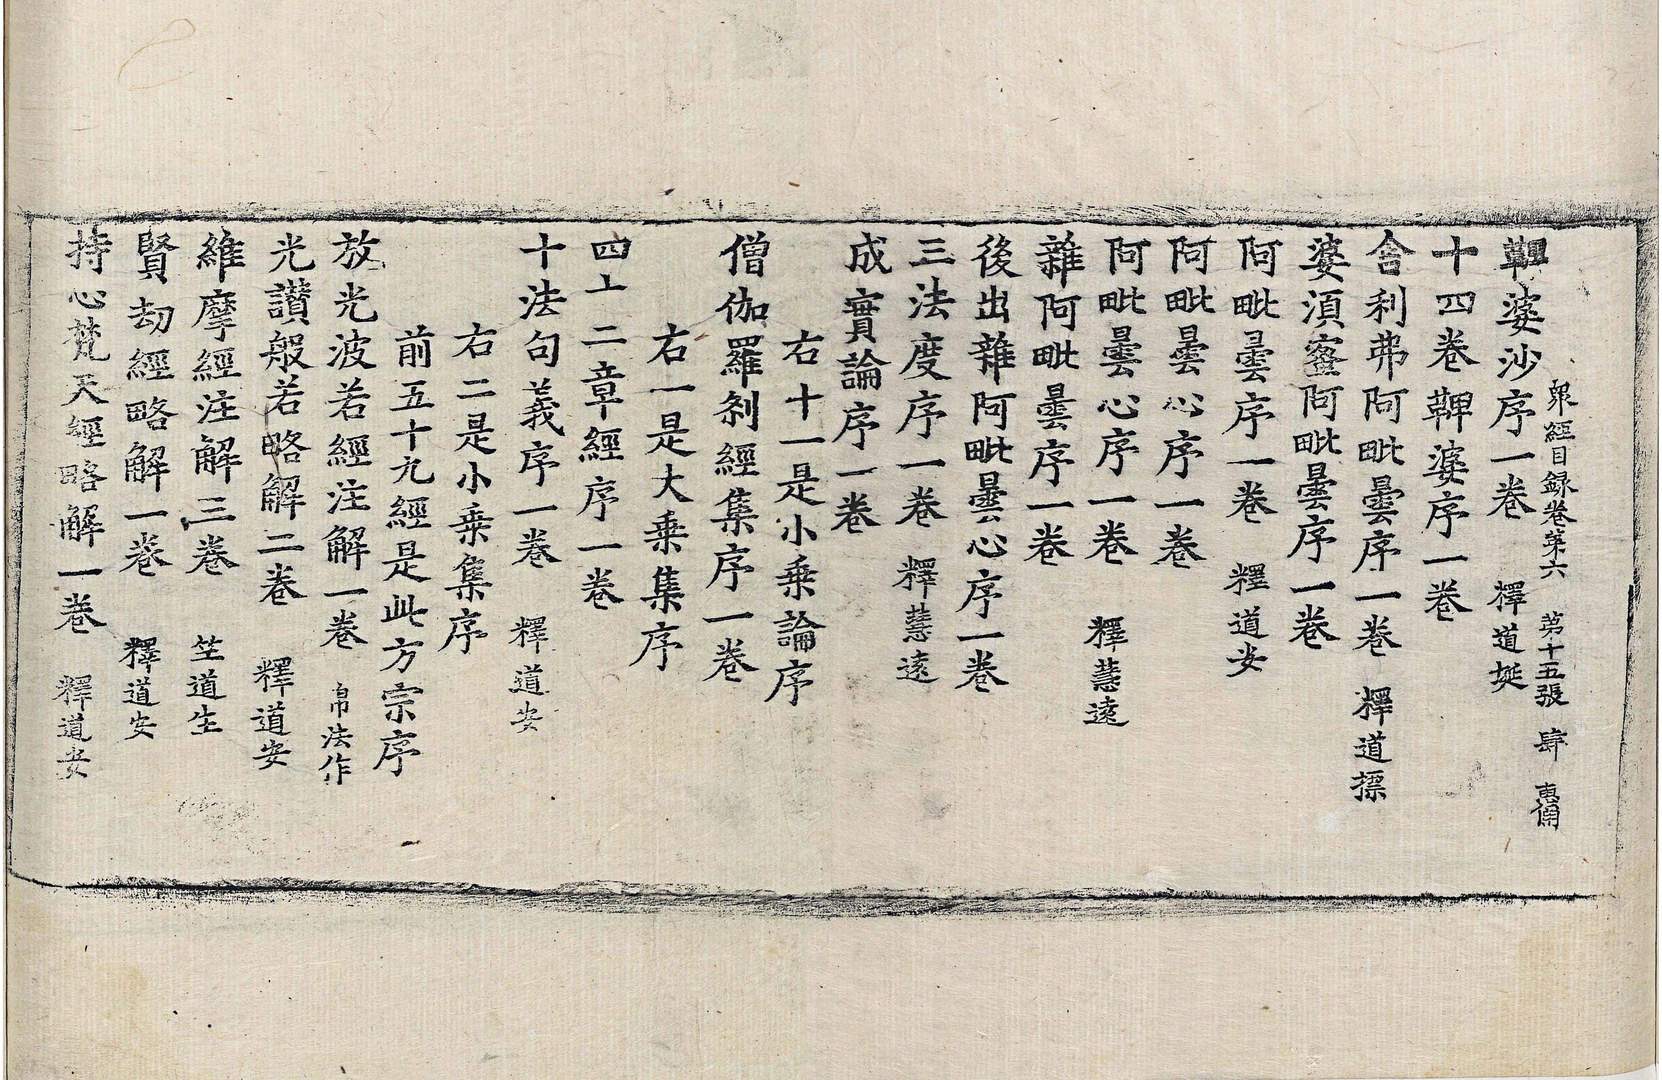 衆經目録卷第六 第十五張 肆 惠角
鞞婆沙序一卷 釋道埏
十四卷鞞婆序一卷
舍利弗阿毗曇序一卷 釋道摽
婆須蜜阿毗曇序一卷
阿毗曇序一卷 釋道安
阿毗曇心序一卷
阿毗曇心序一卷 釋慧遠
雜阿毗曇序一卷
後出雜阿毗曇心序一卷
三法度序一卷 釋慧遠
成實論序一卷
右十一是小乗論序
僧伽羅刹經集序一卷
右一是大乗集序
四十二章經序一卷
十法句義序一卷 釋道安
右二是小乗集序
前五十九經是此方宗序
放光波若經注解一卷 帛法作
光讃般若略解二卷 釋道安
維摩經注解三卷 竺道生
賢劫經略解一卷 釋道安
持心梵天經略解一卷 釋道安